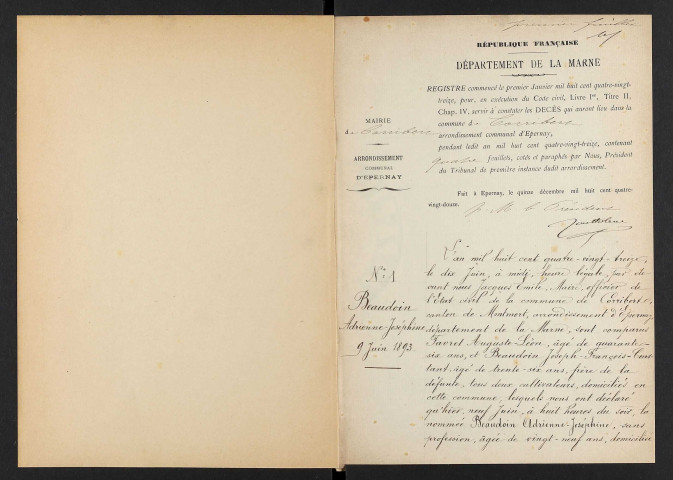 premier feuillet
RÉPUBLIQUE FRANÇAISE
DÉPARTEMENT DE LA MARNE
REGISTRE commencé le premier Janvier mil huit cent quatre-vingt-
treize, pour, en exécution du Code civil, Livre Ier, Titre II,
Chap. IV, servir à constater les DÉCÈS qui auront lieu dans la
commune de Corribert
arrondissement communal d'Epernay,
pendant ledit an mil huit cent quatre-vingt-treize, contenant
quatre feuillets, cotés et paraphés par Nous, Président
du Tribunal de première instance dudit arrondissement.
Fait à Epernay, le quinze décembre mil huit cent quatre-
vingt-douze.
p. M. le Président
MAIRIE
de Corribert
ARRONDISSEMENT
COMMUNAL
D'ÉPERNAY
N° 1
Beaudoin
Adrienne-Joséphine
9 Juin 1893.
L'an mil huit cent quatre-vingt-treize,
le dix Juin, à midi, heure légale, par de-
vant nous Jacques Emile, Maire, officier de
l'État civil de la commune de Corribert,
canton de Montmort, arrondissement d'Epernay,
département de la Marne, sont comparus
Favret Auguste-Léon, âgé de quarante-
six ans, et Beaudoin Joseph-François-Cons-
tant, âgé de trente-six ans, frère de la
défunte, tous deux cultivateurs, domiciliés en
cette commune, lesquels nous ont déclaré
qu'hier, neuf Juin, à huit heures du soir, la
nommée Beaudoin Adrienne-Joséphine, sans
profession, âgée de vingt-neuf ans, domiciliée